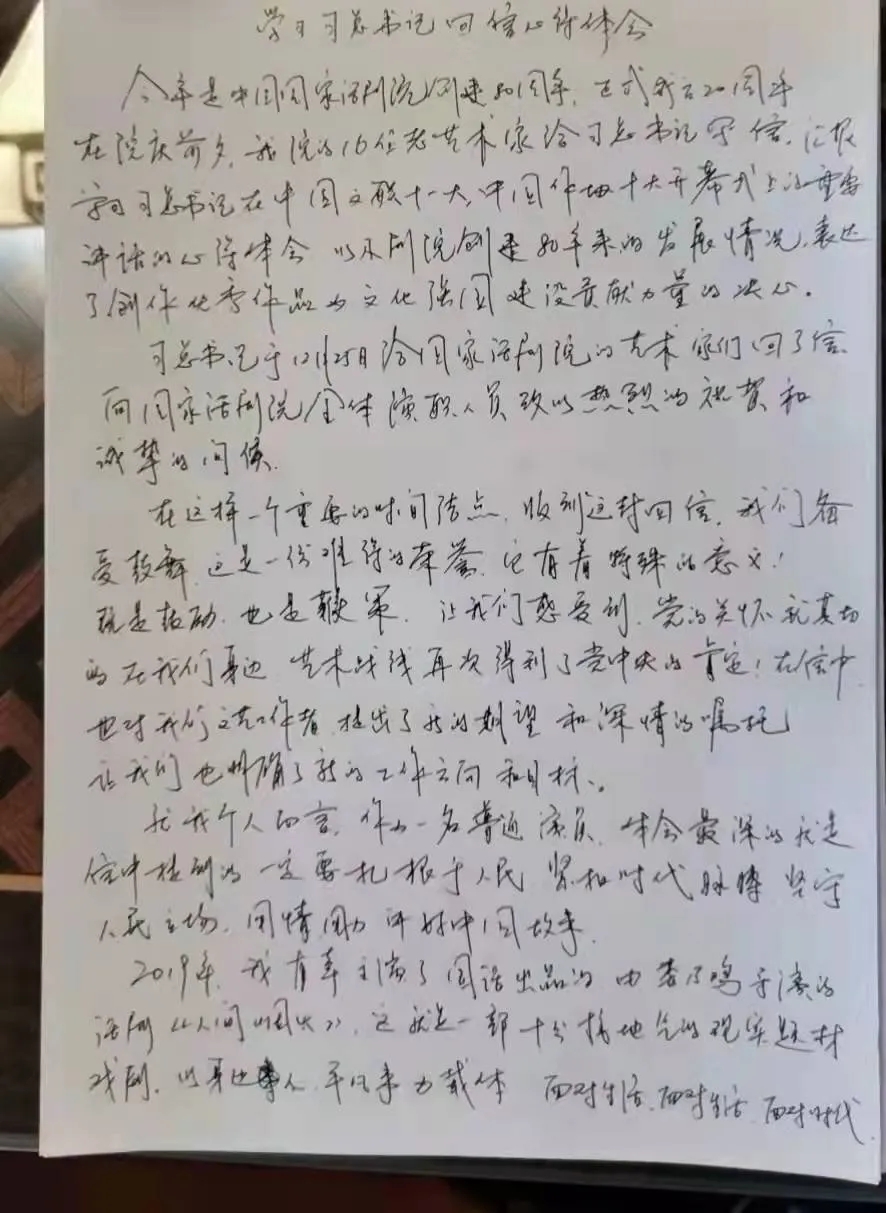 学习习总书记回信心得体会
今年是中国国家话剧院创建80周年，正式成立20周年
在院庆前夕，我院的16位老艺术家给习总书记写信，汇报
学习习总书记在中国文联十一大、中国作协十大开幕式上的重要
讲话的心得体会 以及剧院创建80年来的发展情况，表达
了创作优秀作品为文化强国建设贡献力量的决心。
习总书记于12月25日给国家话剧院的艺术家们回了信，
向国家话剧院全体演职人员致以热烈的祝贺和
诚挚的问候。
在这样一个重要的时间结点，收到这封回信，我们备
受鼓舞，这是一份难得的荣誉，它有着特殊的意义！
既是鼓励，也是鞭策，让我们感受到，党的关怀就真切
的在我们身边 艺术战线再次得到了党中央的肯定！在信中
也对我们文艺工作者，提出了新的期望和深情的嘱托
让我们也明确了新的工作方向和目标。
就我个人而言，作为一名普通演员，体会最深的就是
信中提到的一定要扎根于人民 紧扣时代脉搏 坚守
人民立场，用情用力讲好中国故事
2019年，我有幸主演了国话出品的 由查明哲导演的
话剧《人间烟火》，这就是一部十分接地气的现实题材
戏剧，以身边人，平凡事为载体 面对生活，面对生活，面对时代